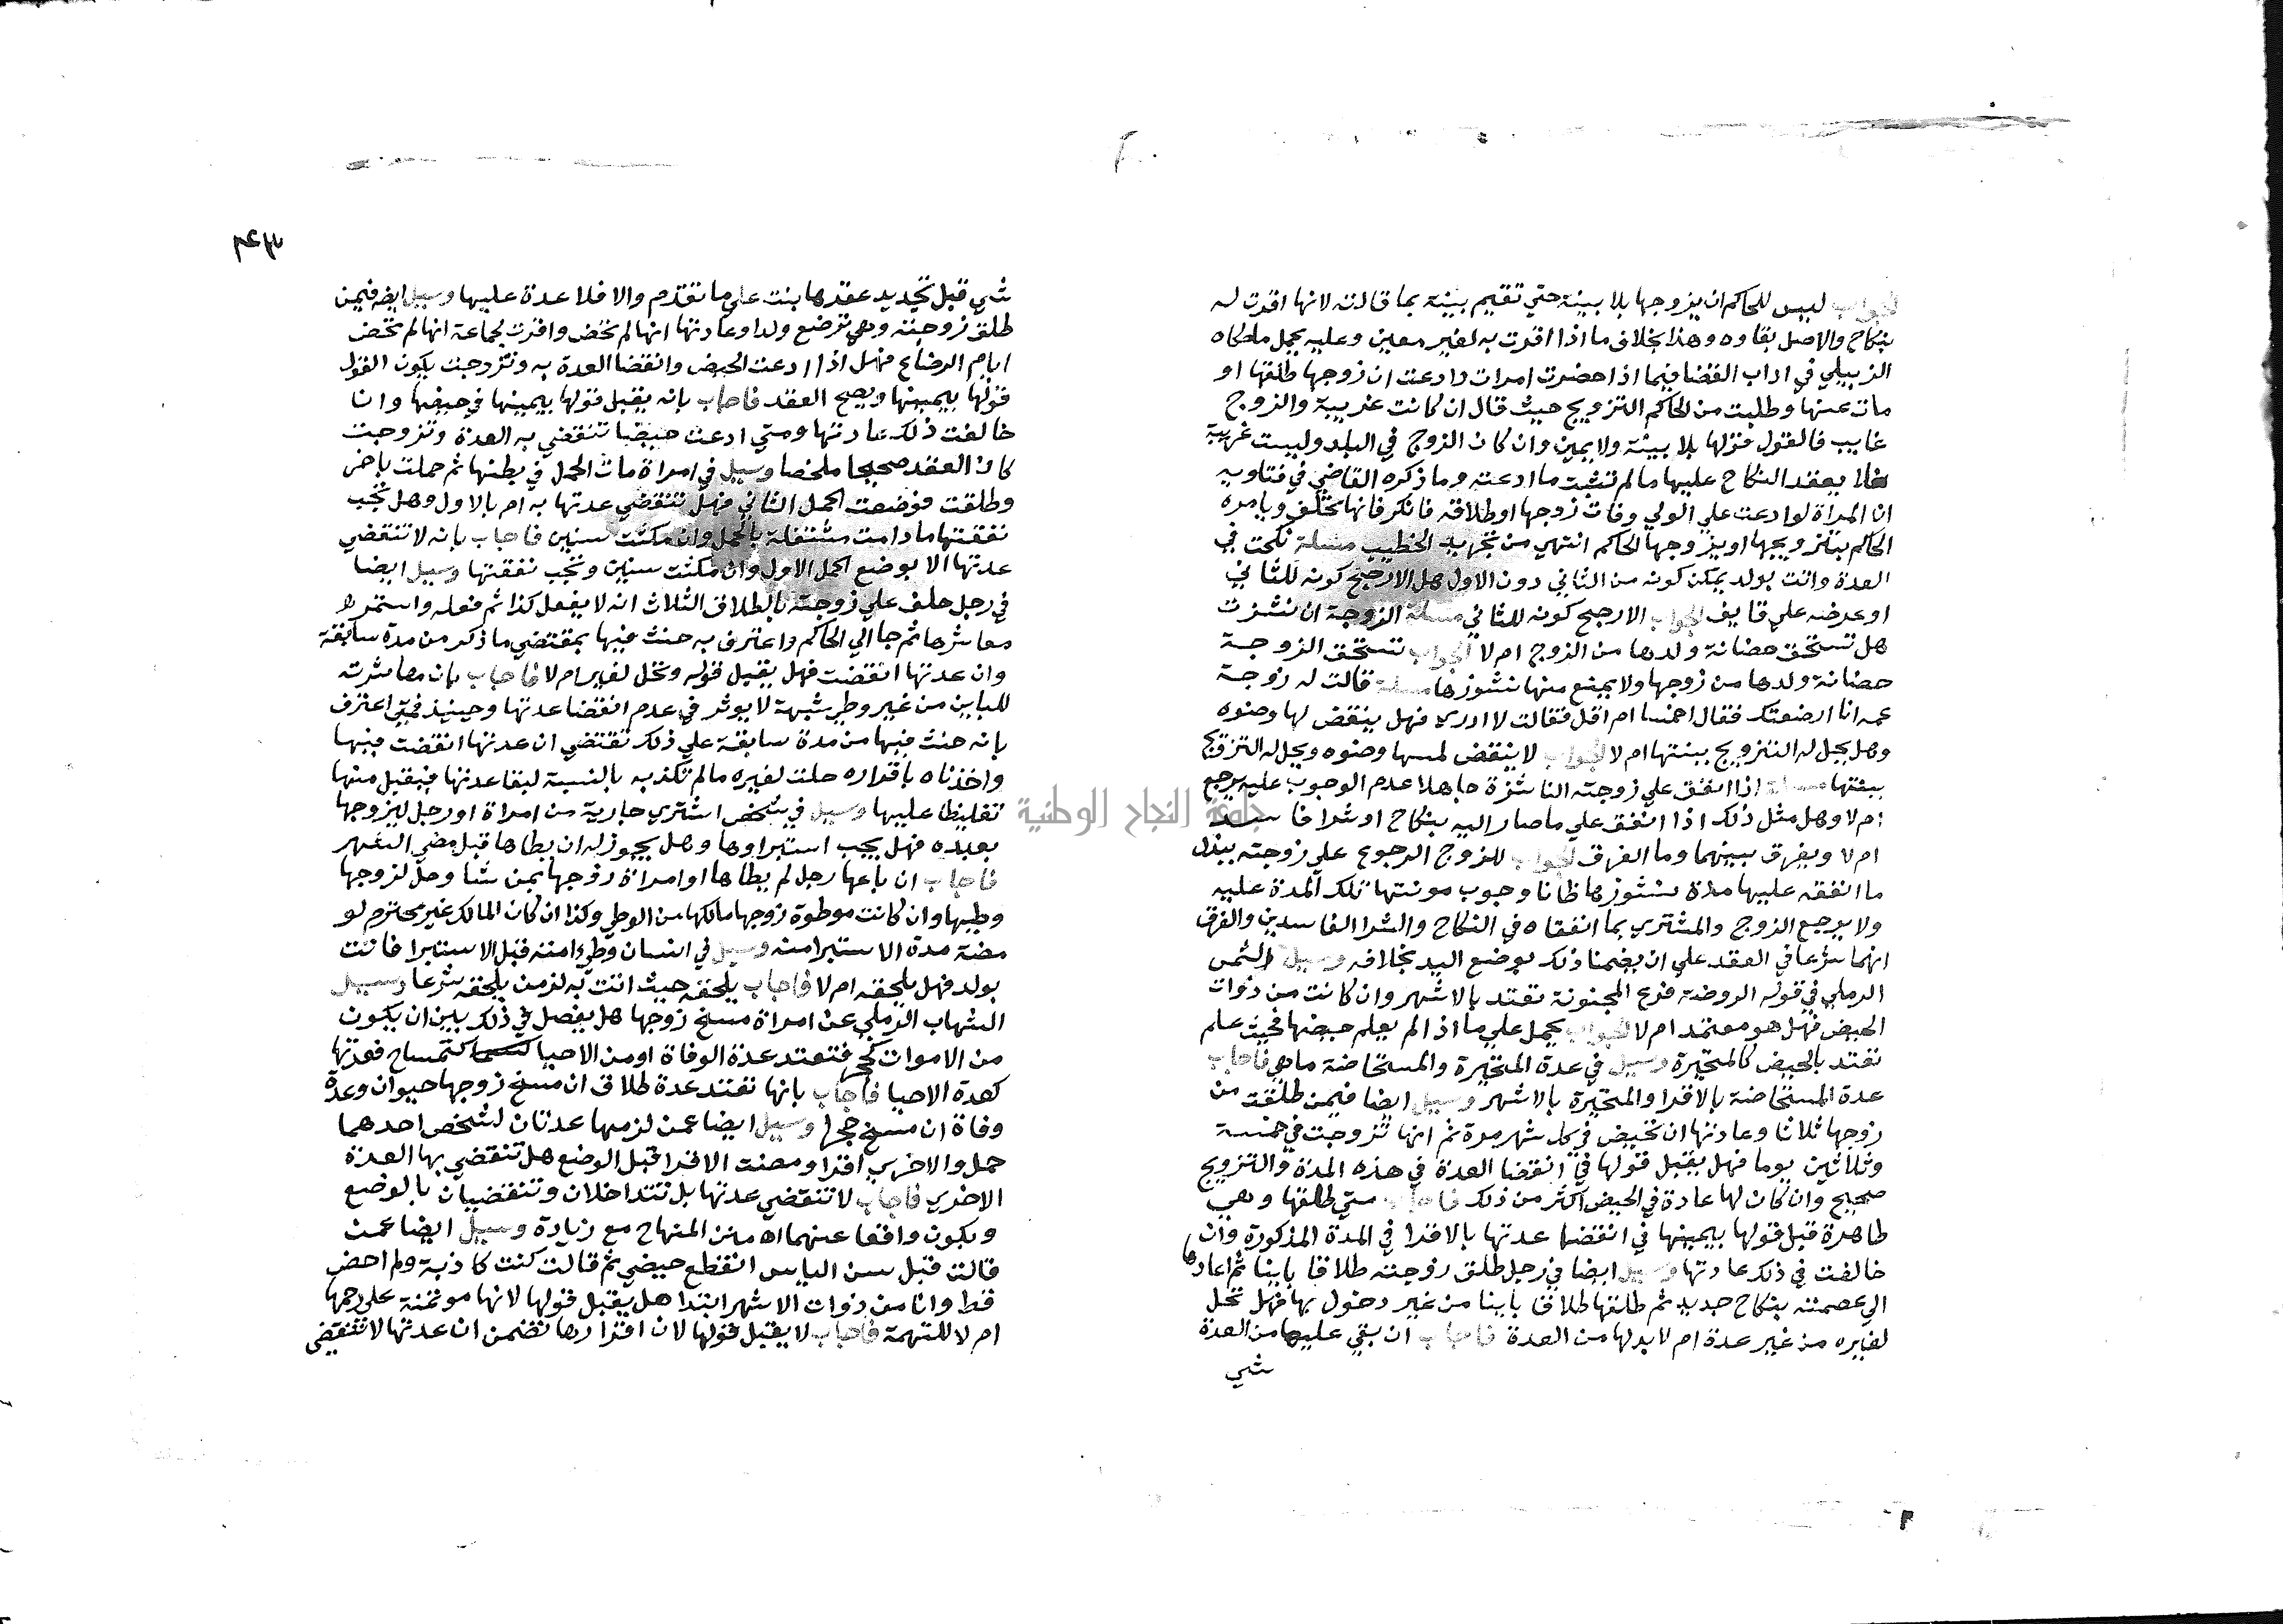 الجواب ليس للحاكم ان يزوجها بلا بينة حتي تقيم بينة بما قالت لانها اقرت له
بنكاح والاصل بقاوه وهذا بخلاف ما اذا اقرت به لغير معين وعليه يحمل ماحكاه
الزبيلي في اداب القضا فيما اذا حضرت امراة وادعت ان زوجها طلقها او
مات عنها وطلبت من الحاكم التزويج حيث قال ان كانت غريبة والزوج
غايب فالقول قولها بلا بينة ولا يمين وان كان الزوج في البلد وليست غريبة
فلا يعقد النكاح عليها مالم تثبت ما ادعته وما ذكره القاضي في فتاويه
ان المراة لو ادعت علي الولي وفات زوجها او طلاقه فانكر فانها تحلف ويامره
الحاكم بتزويجها او يزوجها الحاكم انتهي من الخطيب مسلة نكحت في
العدة واتت بولد يمكن كونه من الثاني دون الاول هل الارجح كونه للثاني
او عرضه علي قايف الجواب الارجح كونه للثاني مسلة الزوجة ان نشزت
هل تستحق حضانة ولدها من الزوج ام لا الجواب تستحق الزوجة
حضانة ولدها من زوجها ولا يمنع منها نشوزها مسلة قالت له زوجة
عمه انا ارضعتك فقال اخمسا ام اقل فقالت لا ادري فهل ينقض لها وضوه
وهل يحل له التزويج ببنتها ام لا الجواب لا ينقض لمسها وضوه ويحل له التزوج
ببنتها مسلة اذا انفق علي زوجته الناشزة جاهلا عدم الوجوب عليه يرجع
ام لا وهل مثل ذلك اذا انفق علي ما صار اليه بنكاح او شرا فاسد
ام لا ويفرق بينهما وما الفرق الجواب للزوج الرجوع علي زوجته ببذل
ما انفقه عليها مدة نشوزها ظانا وجوب مونتها تلك المدة عليه
ولا يرجع الزوج والمشتري بما انفقاه في النكاح والشرا الفاسدين والفرق
انهما شرعا في العقد علي ان يضمنا ذلك بوضع اليد بخلافه وسيل الشمس
الرملي في قوله الروضة فرع المجنونة تعتد بالاشهر وان كانت من ذوات
الحيض فهل هو معتمد ام لا الجواب يحمل علي ما اذا لم يعلم حيضها فحيث علم
تعتد بالحيض كالمتحيرة وسيل في عدة المتحيرة والمستحاضة ماهي فاجاب
عدة المستحاضة بالاقرا والمتحيرة بالاشهر وسيل ايضا فيمن طلقت من
زوجها ثلاثا وعادتها ان تحيض في كل شهر مرة ثم انها تزوجت في خمسة
وثلاثين يوما فهل يقبل قولها في انقضا العدة في هذه المدة والتزويج
صحيح وان كان لها عادة في الحيض اكثر من ذلك فاجاب متي طلقها وهي
طاهرة قبل قولها بيمينها في انقضا عدتها بالاقرا في المدة المذكورة وان
خالفت في ذلك عادتها وسيل ايضا في رجل طلق زوجته طلاقا باينا ثم اعادها
الي عصمته بنكاح جديد ثم طلقها طلاقا باينا من غير دخول بها فهل تحل
لغيره من غير عدة ام لا بد لها من العدة فاجاب ان بقي عليها من العدة
شي
شي قبل تجديد عقدها بنت علي ما تقدم والا فلا عدة عليها وسيل ايضا فيمن
طلق زوجته وهي ترضع ولدا وعادتها انها لم تحض واقرت لجماعة انها لم تحض
ايام الرضاع فهل اذا ادعت الحيض وانقضا العدة به وتزوجت يكون القول
قولها بيمينها ويصح العقد فاجاب بانه يقبل قولها بيمينها في حيضها وان
خالفت ذلك عادتها ومتي ادعت حيضا تنقضي به العدة وتزوجت
كان العقد صحيحا ملخصا وسيل في امراة مات الحمل في بطنها ثم حملت باخر
وطلقت فوضعت الحمل الثاني فهل تنقضي عدتها به ام بالاول وهل تجب
نفقتها مادامت مشتغلة بالحمل وان مكثت سنين فاجاب بانه لا تنقضي
عدتها الا بوضع الحمل الاول وان مكثت سنين وتجب نفقتها وسيل ايضا
في رجل حلف علي زوجته بالطلاق الثلاث انه لا يفعل كذا ثم فعله واستمر
معاشرها ثم جا الي الحاكم واعترف به حنث فيها بمقتضي ما ذكر من مدة سابقة
وان عدتها انقضت فهل يقبل قوله وتحل لغيره ام لا فاجاب بان معاشرته
للباين من غير وطي شبهة لا يوثر في عدم انقضا عدتها وحينيذ فمتي اعترف
بانه حنث فيها من مدة سابقة علي ذلك تقتضي ان عدتها انقضت فيها
واخذناه باقراره حلت لغيره مالم تكذبه بالنسبة لبقا عدتها فيقبل منها
تغليظا عليها وسيل في شخص اشتري جارية من امراة او رجل ليزوجها
بعبده فهل يجب استبراوها وهل يجوز له ان يطاها قبل مضي الشهر
فاجاب ان باعها رجل لم يطاها او امراة زوجها بمن شا وحل لزوجها
وطيها وان كانت موطوة زوجها مالكها من الوطي وكذا ان كان المالك غير محترم لو
مضة مدة الاستبرا منه وسيل في انسان وطي امته قبل الاستبرا فاتت
بولد فهل يلحقه ام لا فاجاب يلحقه حيث اتت به لزمن يلحقه شرعا وسيل
الشهاب الرملي عن امراة مسخ زوجها هل يفصل في ذلك بين ان يكون
من الاموات كحجر فتعتد عدة الوفاة او من الاحيا كتمساح فعدتها
كعدة الاحيا فاجاب بانها تعتد عدة طلاق ان مسخ زوجها حيوان وعدة
وفاة ان مسخ حجرا وسيل ايضا عمن لزمها عدتان لشخص احدهما
حمل والاخري اقرا ومضت الاقرا قبل الوضع هل تنقضي بها العدة
الاخري فاجاب لا تنقضي عدتها بل تتداخلان وتنقضيان بالوضع
ويكون واقعا عنهما اه متن المنهاج مع زيادة وسيل ايضا عمن
قالت قبل سن الياس انقطع حيضي ثم قالت كنت كاذبة ولم احض
قط وانا من ذوات الاشهر ابتدا هل يقبل قولها لانها موتمنة علي رحمها
ام لا للتهمة فاجاب لا يقبل قولها لان اقرارها تضمن ان عدتها لا تنقضي
جامعة النجاح الوطنية